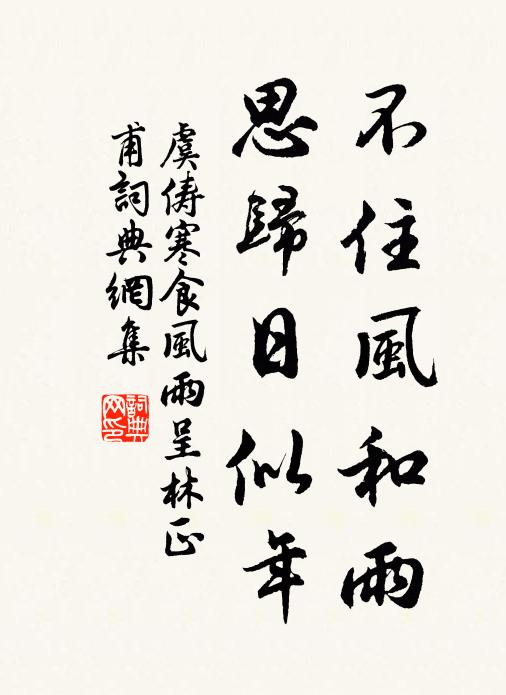 不住風和雨
思歸日似年
虞儔寒食風雨呈林正
甫詞典網集
詞典
网印